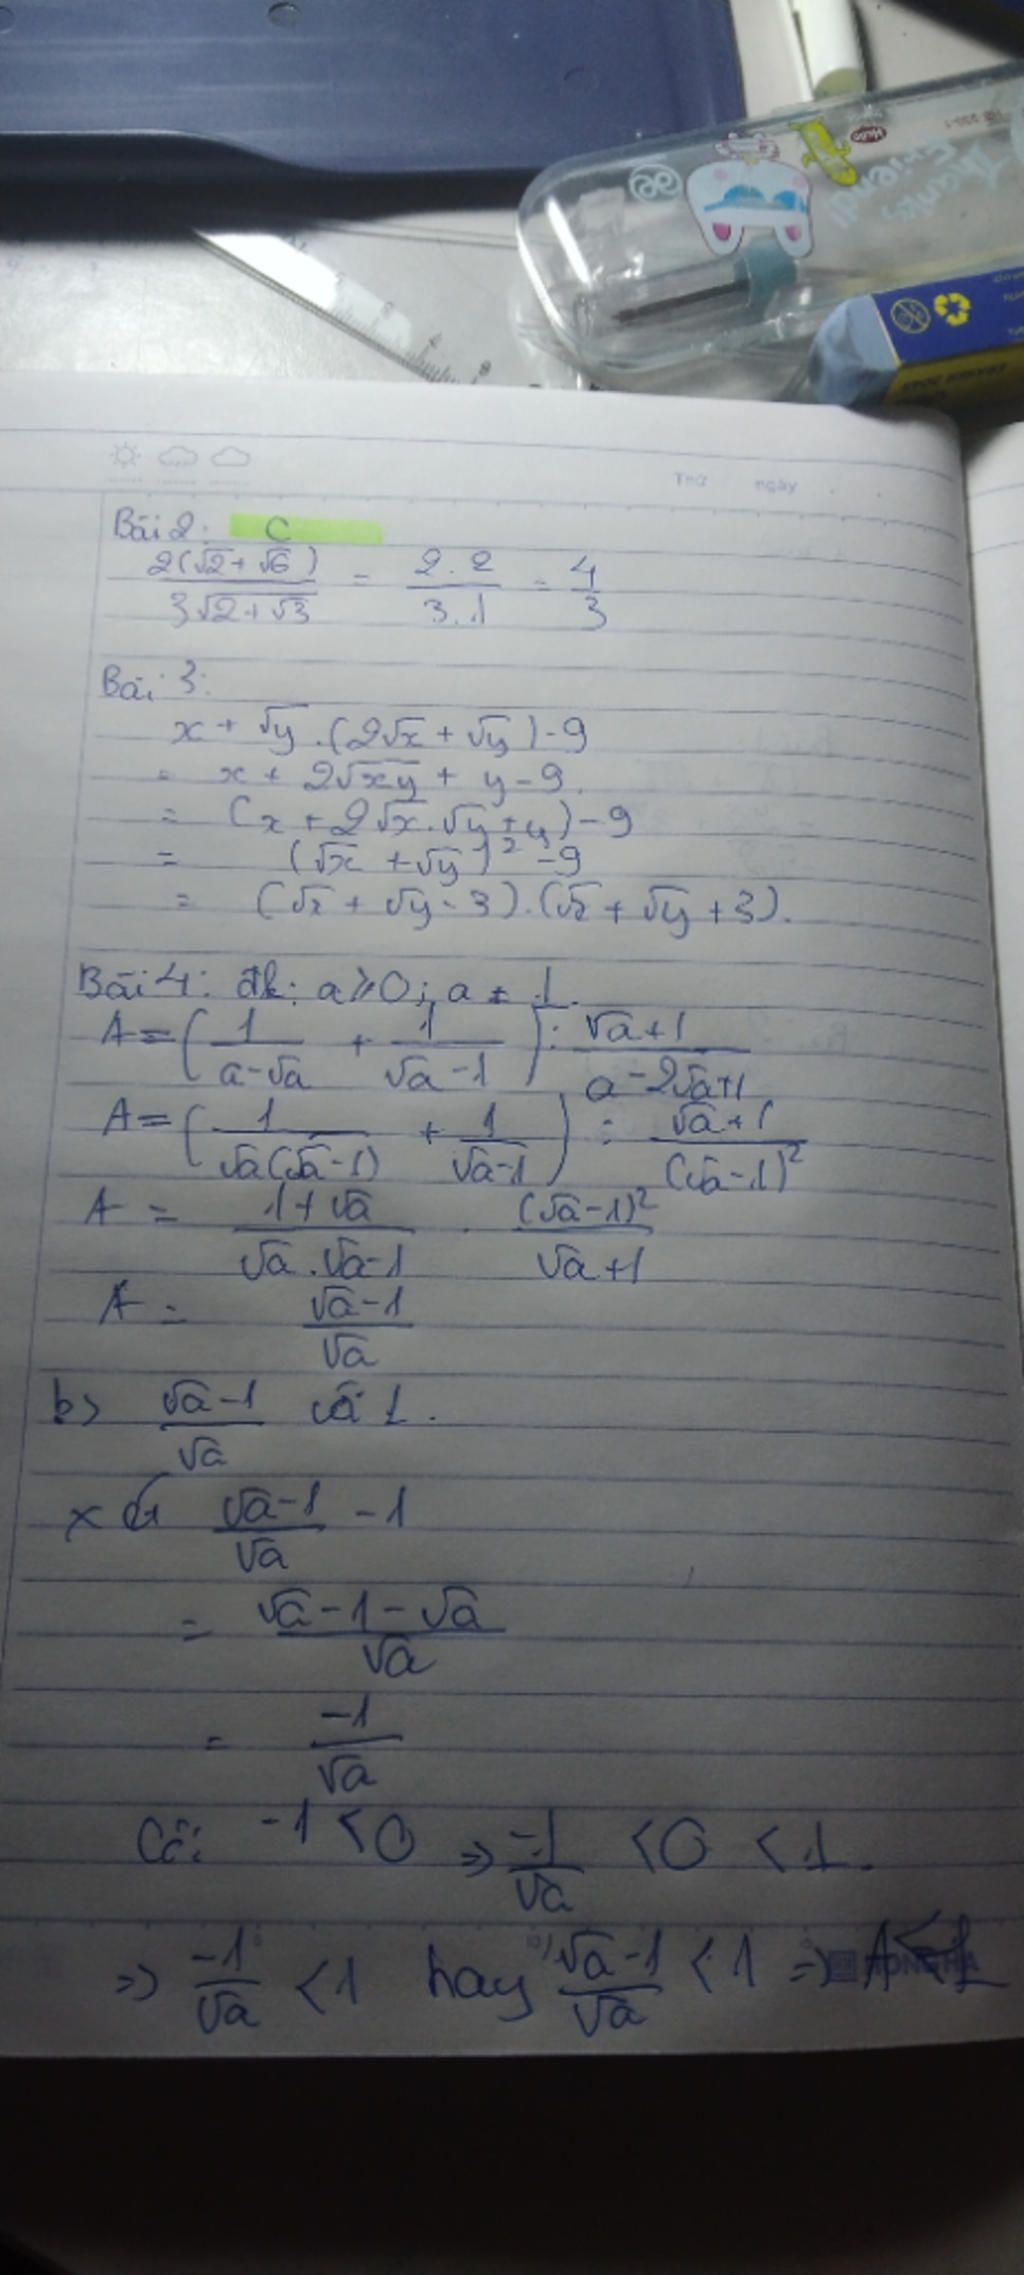 Thank
Friend!
Thứ ngày
Bài 2: C
2(√2+√6) / 3√2+√3 = 2.2 / 3.1 = 4/3
Bài 3:
x + √y.(2√x + √y) - 9
= x + 2√xy + y - 9.
= (x + 2√x.√y + y) - 9
= (√x + √y)² - 9
= (√x + √y - 3).(√x + √y + 3).
Bài 4: đk: a ⩾ 0; a ≠ 1.
A = (1 / a-√a + 1 / √a-1) : √a+1 / a-2√a+1
A = (1 / √a(√a-1) + 1 / √a-1) : √a+1 / (√a-1)²
A = 1+√a / √a.√a-1 . (√a-1)² / √a+1
A = √a-1 / √a
b) √a-1 / √a và 1.
√a-1 / √a - 1
= √a-1-√a / √a
= -1 / √a
Có: -1 < 0 => -1 / √a < 0 < 1.
=> -1 / √a < 1 hay √a-1 / √a < 1 => A < 1
HONG HA